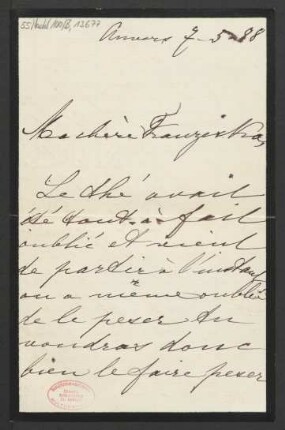 Anvers 7-5-88
Ma chère Franziska,
Le thé avait
été tout-à-fait
oublié et vient
de partir à l'instant
on a même oublié
de le peser tu
voudras donc
bien le faire peser